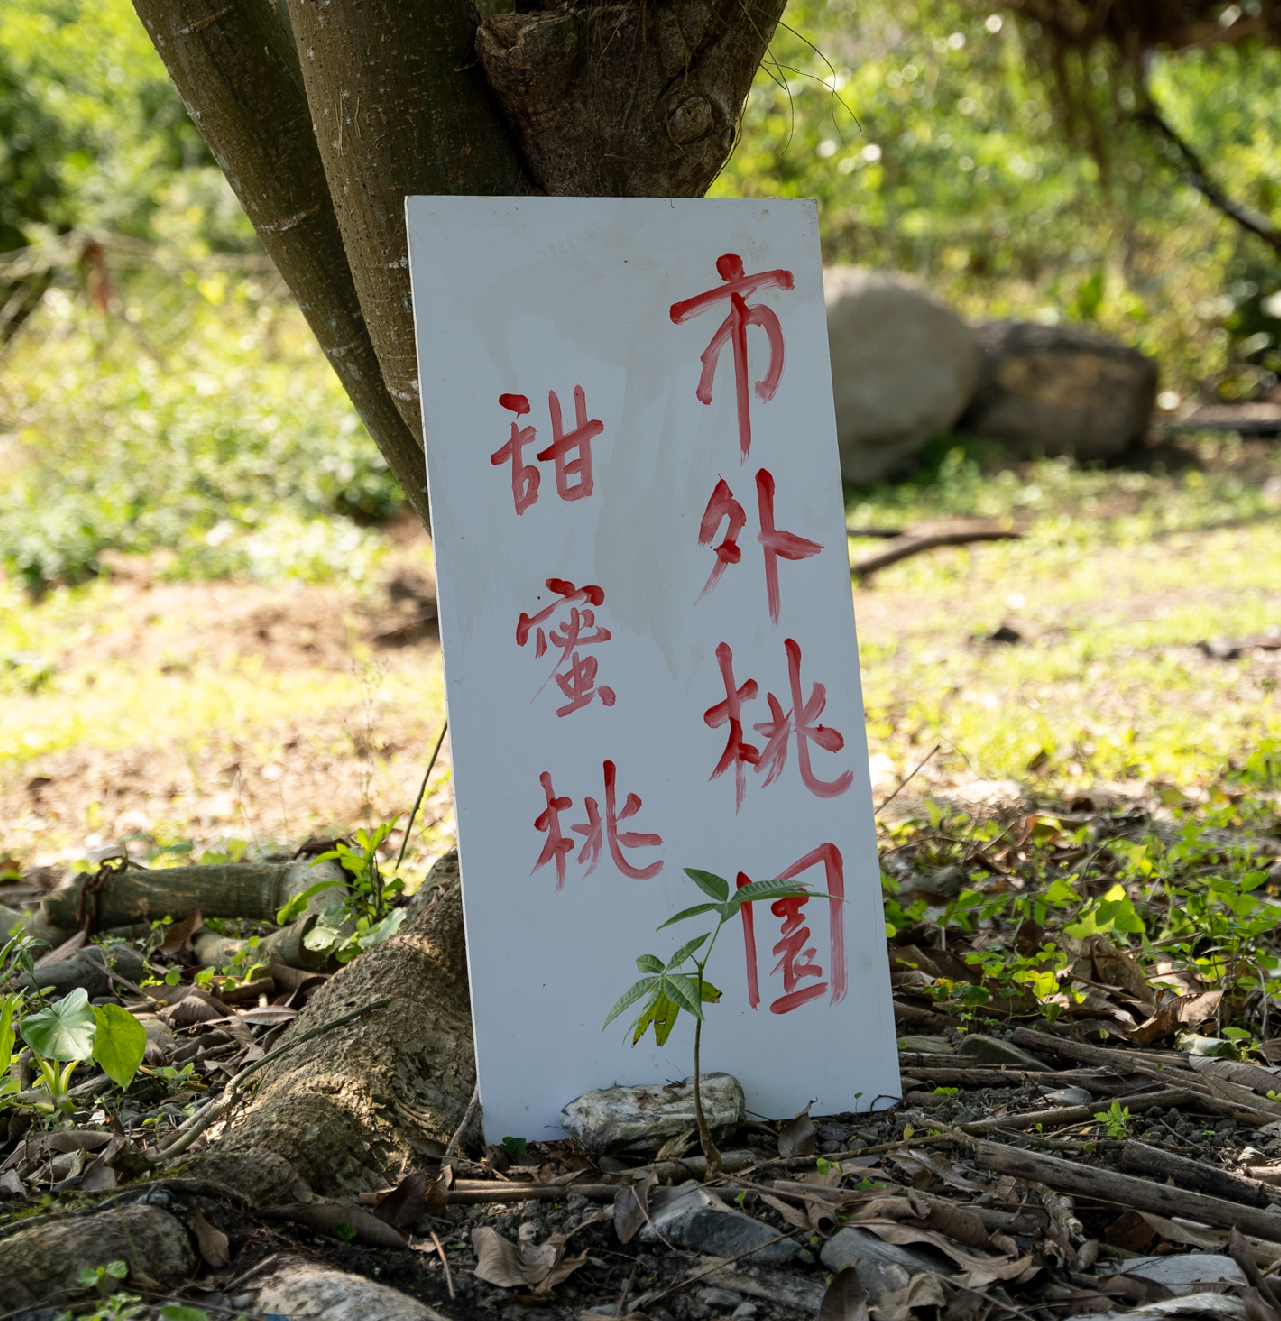 市外桃園
甜蜜桃